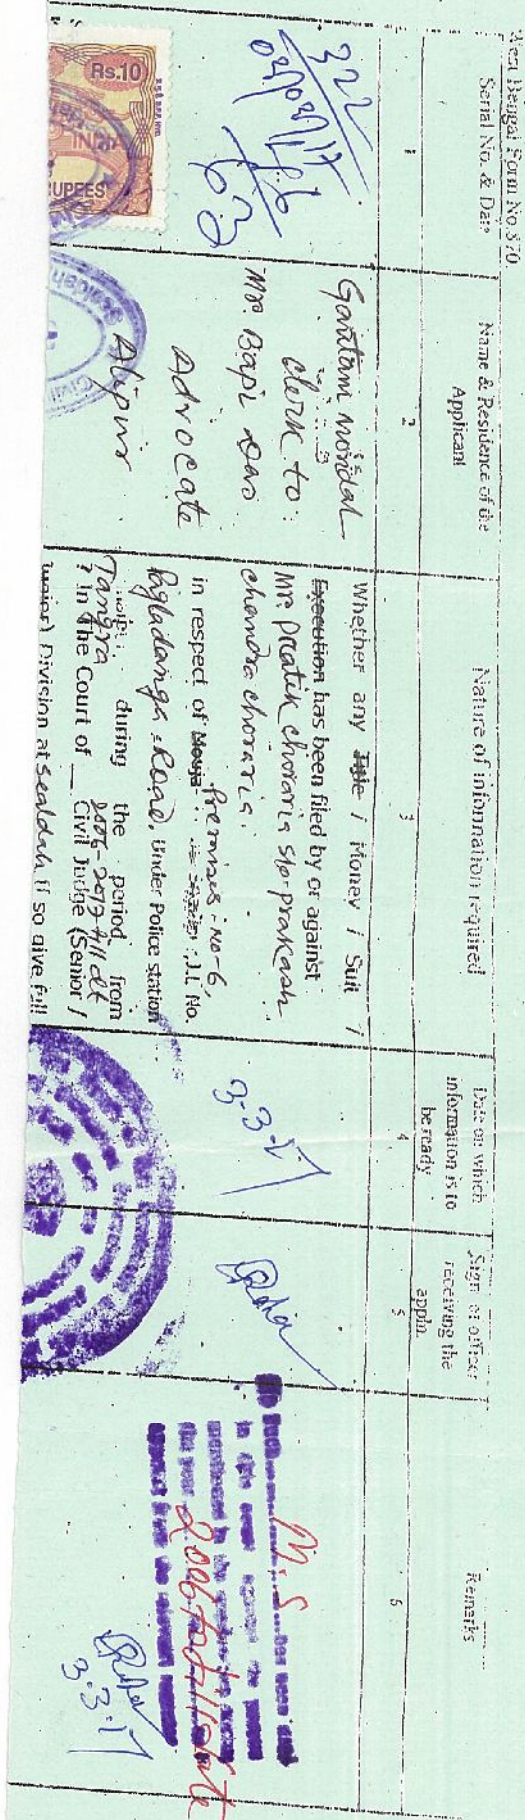 West Bengal Form No.370.
Serial No. & Date
Name & Residence of the
Applicant
Nature of information required
Date on which
information is to
be ready
Sign of officer
receiving the
appln.
Remarks
1
2
3
4
5
6
322
03/03/17
63
Rs.10
RUPEES
Goutam mondal
clerk to
Mr. Bapi Das
Advocate
Alipur
Whether any Title / Money / Suit /
Execution has been filed by or against
Mr. Pratik choraria s/o-prakash
chandra choraria.
in respect of Mouja Premises-No-6, J.L No.
Pagladanga Road, Under Police station
Tangra during the period from
2006-2017 till dt
? In The Court of __ Civil Judge (Senior /
Junior) Division at Sealdah. If so give full
3-3-17
No Such M.S. has been
in the
mentioned in the
the year 2006 to dill date
3.3.17
Sealdah
Civil